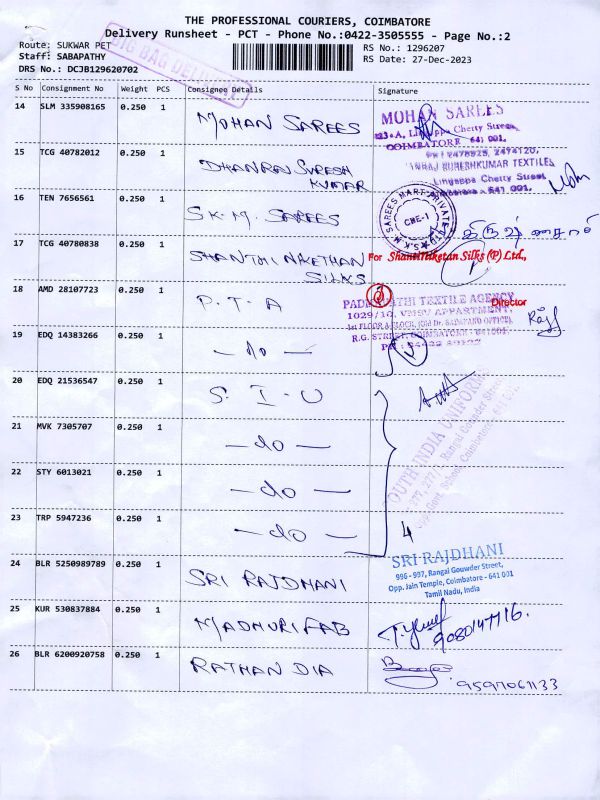 THE PROFESSIONAL COURIERS, COIMBATORE
Delivery Runsheet - PCT - Phone No.:0422-3505555 - Page No.:2
Route: SUKWAR PET
RS No.: 1296207
Staff: SABAPATHY
RS Date: 27-Dec-2023
DRS No.: DCJB129620702
BIG BAG DELIVERY
S No Consignment No Weight PCS Consignee Details Signature
14 SLM 335908165 0.250 1 MOHAN SAREES
MOHAN SAREES
Chetty Street,
COIMBATORE 641 001.
15 TCG 40782012 0.250 1 DHANRAJ SURESH KUMAR
PH : 2478925, 2474120,
DHANRAJ SURESHKUMAR TEXTILES
Lingappa Chetty Street
641 001.
16 TEN 7656561 0.250 1 S.K.M. SAREES
S.K.M. SAREES MART PRIVATE LTD
CBE-1
17 TCG 40780838 0.250 1 SHANTHI NIKETHAN SILKS
For Shanthi Niketan Silks (P) Ltd.,
Director
18 AMD 28107723 0.250 1 P.T.A
TEXTILE AGENCY
1029/10, APPARTMENT,
R.G. STREET, COIMBATORE - 641001.
19 EDQ 14383266 0.250 1 - do -
20 EDQ 21536547 0.250 1 S. I - U
SOUTH INDIA UNIFORMS
21 MVK 7305707 0.250 1 - do -
22 STY 6013021 0.250 1 - do -
23 TRP 5947236 0.250 1 - do - 4
24 BLR 5250989789 0.250 1 SRI RAJDHANI
SRI RAJDHANI
996 - 997, Rangai Gouwder Street,
Opp. Jain Temple, Coimbatore - 641 001
Tamil Nadu, India
25 KUR 530837884 0.250 1 MADHURI FAB
9080147116.
26 BLR 6200920758 0.250 1 RATHAN DIA
9597061133